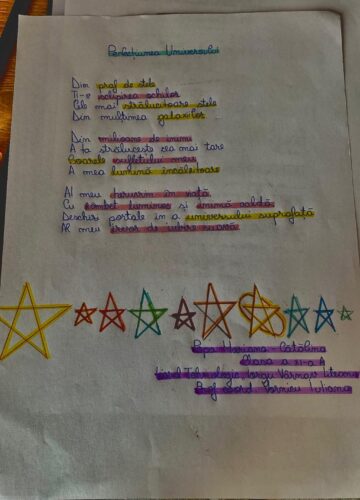 Perfecțiunea Universului
Din praf de stele
Ți-e sclipirea ochilor
Cele mai strălucitoare stele
Din mulțimea galaxiilor
Din milioane de inimi
A ta strălucește cea mai tare
Soarele sufletului meu
A mea lumină însălcitoare
Al meu partener în viață
Cu zâmbet luminos și inimă caldă
Deschis portale în a universului suprafață
Al meu izvor de iubire suavă
Popa Mariana-Cătălina
Clasa a XI-a A
Liceul Tehnologic Iorgu Vârnav Liteanu
Prof. coord. Iuliana